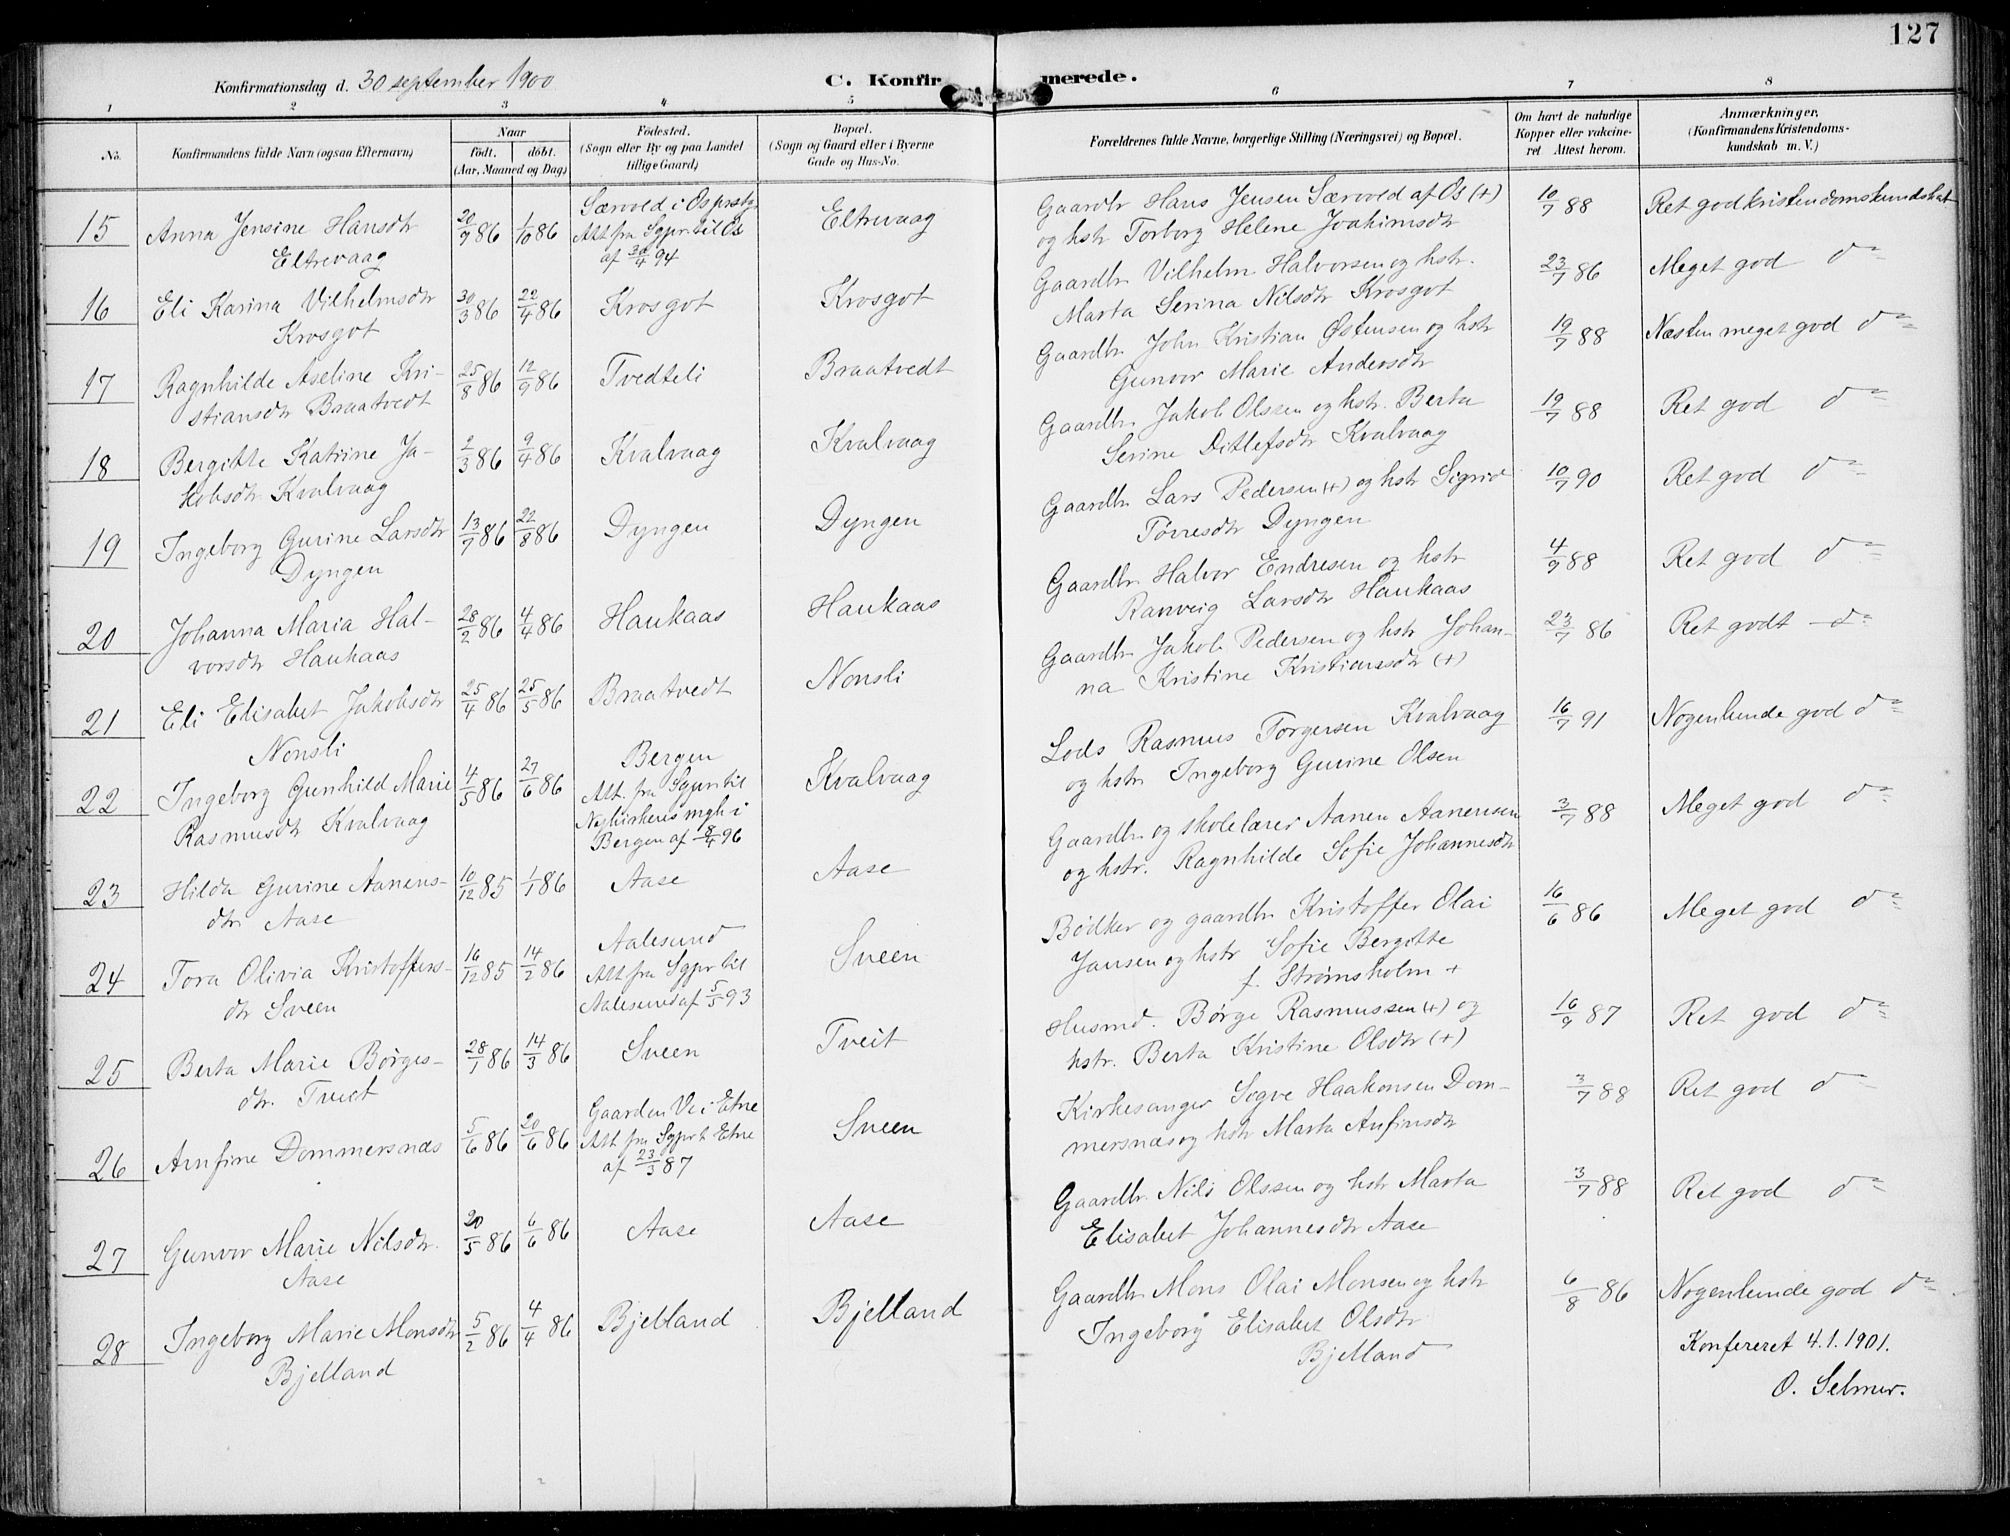 127
Konfirmationsdag d. 30 september 1900
C. Konfirmerede.
1 2 3 4 5 6 7 8
No.
Konfirmandens fulde Navn (ogsaa Efternavn)
Naar
født. døbt.
(Aar, Maaned og Dag)
Fødested.
(Sogn eller By og paa Landet
tillige Gaard)
Bopæl.
(Sogn og Gaard eller i Byerne
Gade og Hus-No.
Forældrenes fulde Navne, borgerlige Stilling (Næringsvei) og Bopæl.
Om havt de naturlige
Kopper eller vaccineret
Attest herom.
Anmærkninger.
(Konfirmandens Kristendomskundskab
m. V.)
15 Anna Jensine Hansdtr
Eltrevaag
20/9 86 1/10 86
Særvold i Os prstgj
Att fra Sgpr. til Os
af 30/4 94
Eltrevaag
Gaardbr Hans Jensen Særvold af Os (+)
og hstr Torborg Helene Joakimsdtr
10/7 88
Ret god kristendomskundskab
16 Eli Karina Vilhelmsdtr
Krosgot
30/3 86 22/4 86
Krosgot
Krosgot
Gaardbr Vilhelm Halvorsen og hstr.
Marta Serina Nilsdtr Krosgot
23/7 86
Meget god do
17 Ragnhilde Aseline Kri-
stiansdtr Braatvedt
25/8 86 12/9 86
Tvedteli
Braatvedt
Gaardbr John Kristian Østensen og hstr
Gunvor Marie Andersdtr
19/7 88
Næsten meget god do
18 Bergitte Katrine Ja-
kobsdtr Kvalvaag
2/3 86 9/4 86
Kvalvaag
Kvalvaag
Gaardbr Jakob Olssen og hstr. Berta
Serine Ditlefsdtr Kvalvaag
19/7 88
Ret god do
19 Ingeborg Gurine Larsdtr
Dyngen
13/7 86 22/8 86
Dyngen
Dyngen
Gaardbr Lars Pedersen (+) og hstr Sigrid
Tørresdtr Dyngen
10/7 90
Ret god do
20 Johanna Maria Hal-
vorsdtr Haukaas
28/2 86 4/4 86
Haukaas
Haukaas
Gaardbr Halvor Endresen og hstr
Ranveig Larsdtr Haukaas
4/9 88
Ret god do
21 Eli Elisabet Jakobsdtr
Nonsli
25/4 86 25/5 86
Braatvedt
Nonsli
Gaardbr Jakob Pedersen og hstr Johan-
na Kristine Kristiansdtr (+)
23/7 86
Ret godt do
22 Ingeborg Gunhild Marie
Rasmusdtr Kvalvaag
4/5 86 27/6 86
Bergen
Att. fra Sgpr til
Nykirkens mgh i
Bergen af 8/4 96
Kvalvaag
Lods Rasmus Torgersen Kvalvaag
og hstr Ingeborg Gurine Olsen
16/7 91
Nogenlunde god do
23 Hilda Gurine Aanens-
dtr Aase
10/12 85 1/1 86
Aase
Aase
Gaardbr og skolelærer Aanen Aanensen
og hstr. Ragnhilde Sofie Johannesdtr
3/7 88
Meget god do
24 Tora Olivia Kristoffers-
dtr Sveen
16/12 85 14/2 86
Aalesund
Att fra Sgpr til
Aalesund af 5/5 93
Sveen
Bødker og gaardbr Kristoffer Olai
Jansen og hstr Sofie Bergitte
f. Strømsholm +
16/6 86
Meget god do
25 Berta Marie Børges-
dtr. Tveit
28/1 86 14/3 86
Sveen
Tveit
Husmd. Børge Rasmussen (+) og
hstr. Berta Kristine Olsdtr (+)
16/9 87
Ret god do
26 Arnfine Dommersnæs
5/6 86 20/6 86
Gaarden Ve i Etne
Att fra Sgpr t Etne
af 23/3 87
Sveen
Kirkesanger Sigve Haakonsen Dom-
mersnæs og hstr Marta Anfinsdtr
3/7 88
Ret god do
27 Gunvor Marie Nilsdtr.
Aase
20/5 86 6/6 86
Aase
Aase
Gaardbr. Nils Olssen og hstr Marta
Elisabet Johannesdtr Aase
3/7 88
Ret god do
28 Ingeborg Marie Monsdtr
Bjelland
5/2 86 4/4 86
Bjelland
Bjelland
Gaardbr Mons Olai Monsen og hstr
Ingeborg Elisabet Olsdtr
Bjelland
6/8 86
Nogenlunde god do
Konfereret 4.1.1901.
O. Selmer.